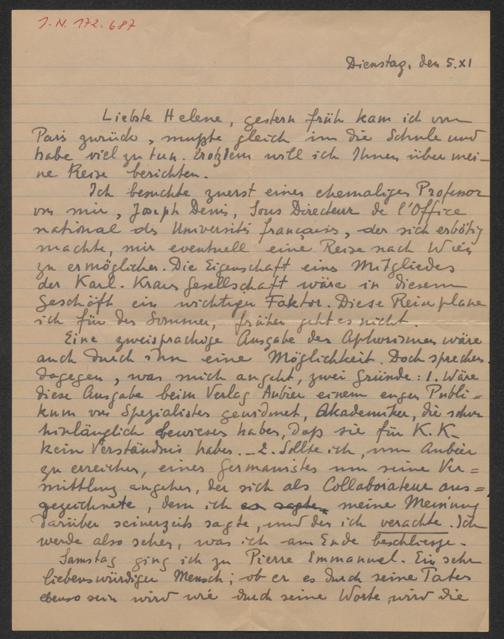 J. N. 172.687
Dienstag, den 5.XI
Liebste Helene, gestern früh kam ich von
Paris zurück, mußte gleich in die Schule und
habe viel zu tun. Trotzdem will ich Ihnen über mei-
ne Reise berichten.
Ich besuchte zuerst einen ehemaligen Professor
von mir, Joseph Denis, Sous Directeur de l'Office
national des Universités françaises, der sich erbötig
machte, mir eventuell eine Reise nach Wien
zu ermöglichen. Die Eigenschaft eines Mitgliedes
der Karl-Kraus Gesellschaft wäre in diesem
Geschäft ein wichtiger Faktor. Diese Reise plane
ich für den Sommer, früher geht es nicht.
Eine zweisprachige Ausgabe der Aphorismen wäre
auch durch ihn eine Möglichkeit. Doch sprechen
dagegen, was mich angeht, zwei Gründe: 1. Wäre
diese Ausgabe beim Verlag Aubier einem engen Publi-
kum von Spezialisten gewidmet, Akademiker, die schon
hinlänglich bewiesen haben, daß sie für K.K.
kein Verständnis haben. _ 2. Sollte ich, um Aubier
zu erreichen, einen Germanisten um seine Ver-
mittlung angehen, der sich als Collaborateur aus-
gezeichnete, dem ich meine Meinung
darüber seinerzeit sagte, und den ich verachte. Ich
werde also sehen, was ich am Ende beschliesse.
Samstag ging ich zu Pierre Emmanuel. Ein sehr
liebenswürdiger Mensch; ob er es durch seine Taten
ebenso sein wird wie durch seine Worte, wird die